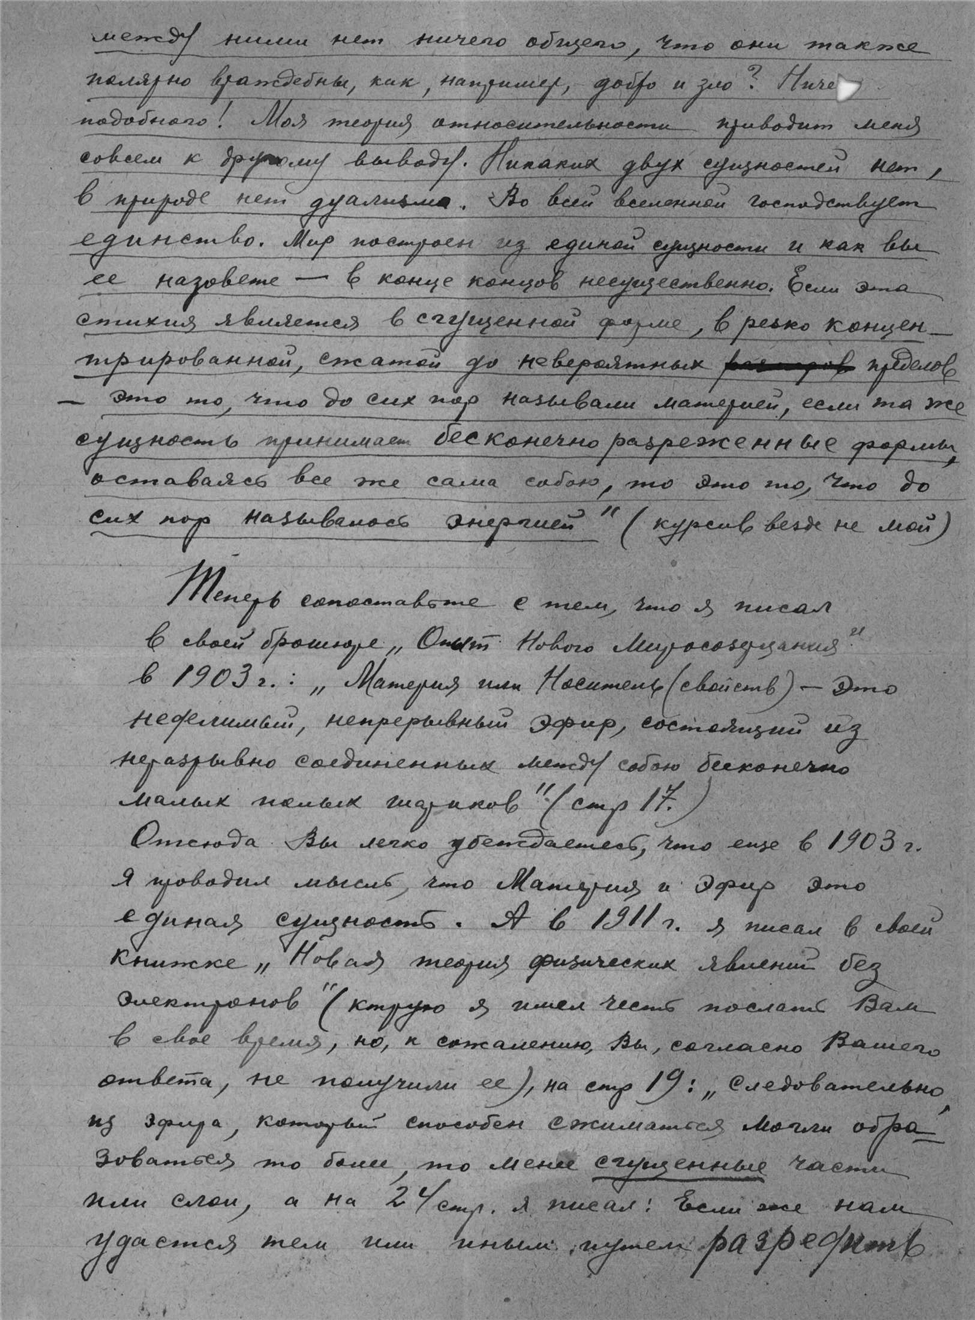 между ними нет ничего общего, что они также
полярно враждебны, как, например, добро и зло? Ниче
подобного! Моя теория относительности приводит меня
совсем к другому выводу. Никаких двух сущностей нет,
в природе нет дуализма. Во всей вселенной господствует
единство. Мир построен из единой сущности и как вы
ее назовете — в конце концов несущественно. Если эта
стихия является в сгущенной форме, в резко концен-
трированной, сжатой до невероятных пределов
— это то, что до сих пор называли материей, если та же
сущность принимает бесконечно разреженные формы,
оставаясь все же сама собою, то это то, что до
сих пор называлось энергией" (курсив везде не мой)
Теперь сопоставьте с тем, что я писал
в своей брошюре „Опыт Нового Миросозерцания"
в 1903 г.: „Материя или Носитель (свойств) — это
неделимый, непрерывный эфир, состоящий из
неразрывно соединенных между собою бесконечно
малых полых шариков" (стр 17.)
Отсюда Вы легко убеждаетесь, что еще в 1903 г.
я проводил мысль, что Материя и Эфир это
единая сущность. А в 1911 г. я писал в своей
книжке „Новая теория физических явлений без
электронов" (ктрую я имел честь послать Вам
в свое время, но, к сожалению, Вы, согласно Вашего
ответа, не получили ее), на стр 19: „Следовательно,
из эфира, который способен сжиматься могли обра-
зоваться то более, то менее сгущенные части
или слои, а на 24 стр. я писал: Если же нам
удастся тем или иным путем разредить